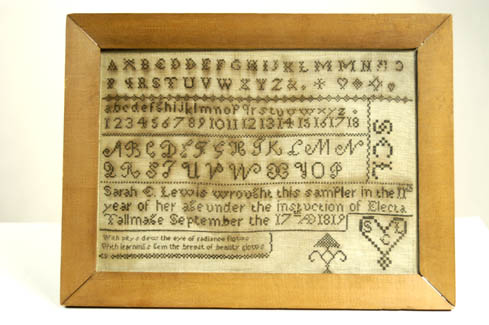 A B C D D E F G H I J K L M M N O
P Q R S T U V W X Y Z &.
abcdefghijklmnopqrstuvwxyz
1 2 3 4 5 6 7 8 9 10 11 12 13 14 15 16 17 18
SCL
Q R S T U V W X Y O P
Sarah C. Lewis wrought this sampler in the 11th
year of her age under the instuction of Electa
Tallmage September the 17th AD 1819
the eye of radiance
With learning's Gem the breast of beauty glows
S C L